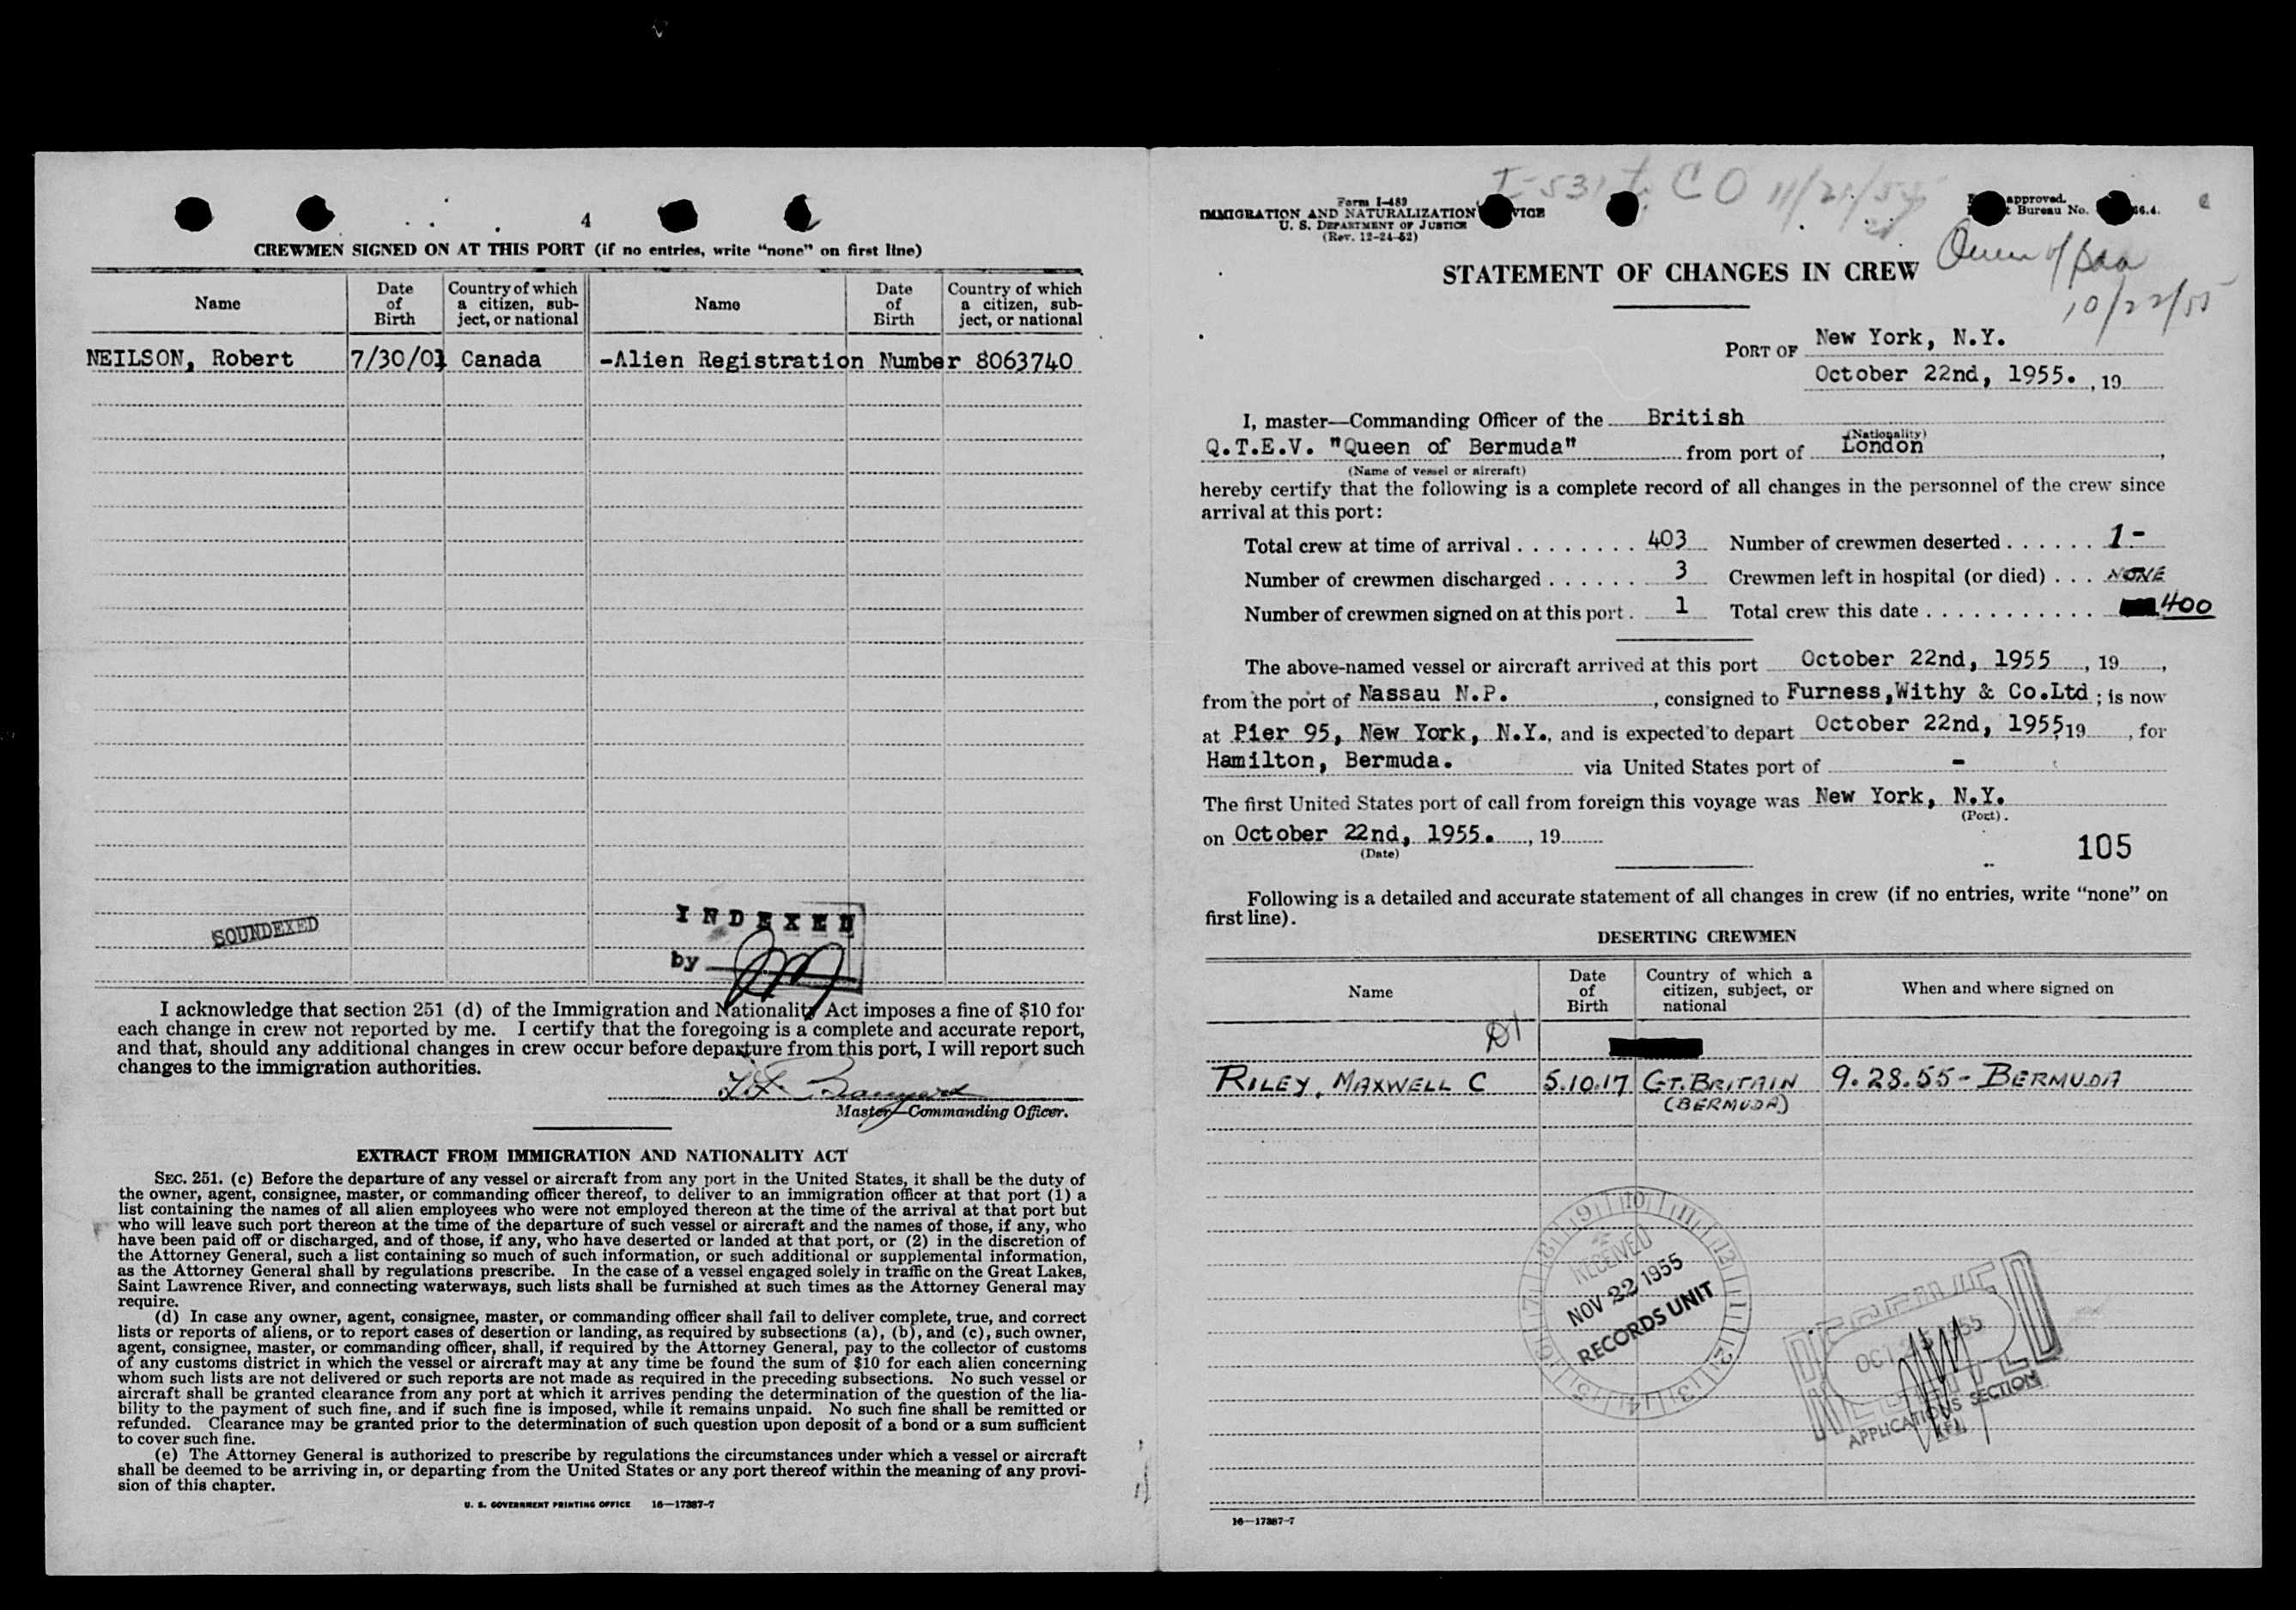 4
CREWMEN SIGNED ON AT THIS PORT (if no entries, write “none” on first line)
Name
Date of Birth
Country of which a citizen, subject, or national
Name
Date of Birth
Country of which a citizen, subject, or national
NEILSON, Robert 7/30/01 Canada -Alien Registration Number 8063740
SOUNDEXED
INDEXED
by
I acknowledge that section 251 (d) of the Immigration and Nationality Act imposes a fine of $10 for
each change in crew not reported by me. I certify that the foregoing is a complete and accurate report,
and that, should any additional changes in crew occur before departure from this port, I will report such
changes to the immigration authorities.
Master—Commanding Officer.
EXTRACT FROM IMMIGRATION AND NATIONALITY ACT
SEC. 251. (c) Before the departure of any vessel or aircraft from any port in the United States, it shall be the duty of
the owner, agent, consignee, master, or commanding officer thereof, to deliver to an immigration officer at that port (1) a
list containing the names of all alien employees who were not employed thereon at the time of the arrival at that port but
who will leave such port thereon at the time of the departure of such vessel or aircraft and the names of those, if any, who
have been paid off or discharged, and of those, if any, who have deserted or landed at that port, or (2) in the discretion of
the Attorney General, such a list containing so much of such information, or such additional or supplemental information,
as the Attorney General shall by regulations prescribe. In the case of a vessel engaged solely in traffic on the Great Lakes,
Saint Lawrence River, and connecting waterways, such lists shall be furnished at such times as the Attorney General may
require.
(d) In case any owner, agent, consignee, master, or commanding officer shall fail to deliver complete, true, and correct
lists or reports of aliens, or to report cases of desertion or landing, as required by subsections (a), (b), and (c), such owner,
agent, consignee, master, or commanding officer, shall, if required by the Attorney General, pay to the collector of customs
of any customs district in which the vessel or aircraft may at any time be found the sum of $10 for each alien concerning
whom such lists are not delivered or such reports are not made as required in the preceding subsections. No such vessel or
aircraft shall be granted clearance from any port at which it arrives pending the determination of the question of the lia-
bility to the payment of such fine, and if such fine is imposed, while it remains unpaid. No such fine shall be remitted or
refunded. Clearance may be granted prior to the determination of such question upon deposit of a bond or a sum sufficient
to cover such fine.
(e) The Attorney General is authorized to prescribe by regulations the circumstances under which a vessel or aircraft
shall be deemed to be arriving in, or departing from the United States or any port thereof within the meaning of any provi-
sion of this chapter.
U. S. GOVERNMENT PRINTING OFFICE 16—17387-7
Form I-489
IMMIGRATION AND NATURALIZATION
U. S. DEPARTMENT OF JUSTICE
(Rev. 12-24-52)
approved.
Bureau No.
STATEMENT OF CHANGES IN CREW
Queen of Bda
10/22/55
PORT OF New York, N.Y.
October 22nd, 1955. , 19
I, master—Commanding Officer of the British
(Nationality)
Q.T.E.V. "Queen of Bermuda" from port of London,
(Name of vessel or aircraft)
hereby certify that the following is a complete record of all changes in the personnel of the crew since
arrival at this port:
Total crew at time of arrival . . . . . . . . 403 Number of crewmen deserted . . . . . . 1-
Number of crewmen discharged . . . . . . 3 Crewmen left in hospital (or died) . . . NONE
Number of crewmen signed on at this port . 1 Total crew this date . . . . . . . . . . . . 400
The above-named vessel or aircraft arrived at this port October 22nd, 1955 , 19 ,
from the port of Nassau N.P. , consigned to Furness,Withy & Co.Ltd ; is now
at Pier 95, New York, N.Y., and is expected to depart October 22nd, 1955, 19 , for
Hamilton, Bermuda. via United States port of -
The first United States port of call from foreign this voyage was New York, N.Y.
(Port).
on October 22nd, 1955. , 19
(Date)
105
Following is a detailed and accurate statement of all changes in crew (if no entries, write “none” on
first line).
DESERTING CREWMEN
Name
Date of Birth
Country of which a citizen, subject, or national
When and where signed on
RILEY, MAXWELL C 5.10.17 GT. BRITAIN 9.28.55 - BERMUDA
(BERMUDA)
RECEIVED
NOV 22 1955
RECORDS UNIT
RECEIVED
OCT 1955
APPLICATIONS SECTION
16—17387-7